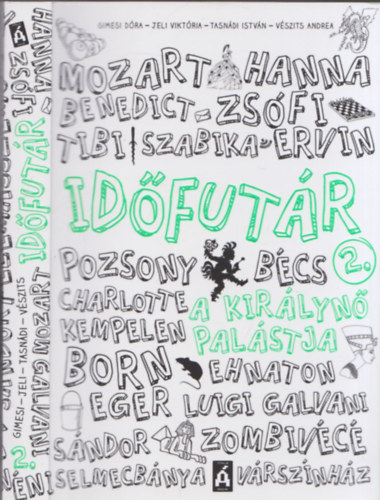 GIMESI DÓRA – JELI VIKTÓRIA – TASNÁDI ISTVÁN – VÉSZITS ANDREA
MOZART HANNA
BENEDICT ZSÓFI
TIBI SZABIKA ERVIN
IDŐFUTÁR
POZSONY BÉCS 2.
CHARLOTTE A KIRÁLYNŐ
KEMPELEN PALÁSTJA
BORN EHNATON
EGER LUIGI GALVANI
SÁNDOR ZOMBIVÉCÉ
SELMECBÁNYA Á VÁRSZÍNHÁZ
HANNA
Á ZSÓFI
IDŐFUTÁR
GIMESI – JELI – TASNÁDI – VÉSZITS
MOZART
GALVANI
2.